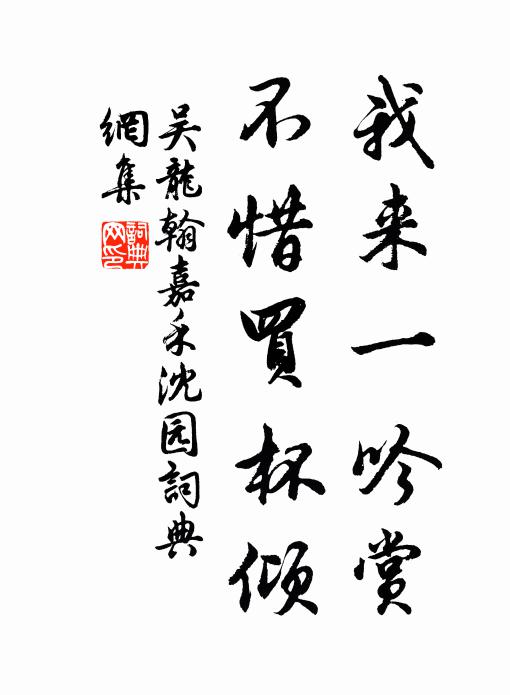 我来一吟赏
不惜買杯傾
吴龍翰嘉禾沈园詞典
網集
詞典网印